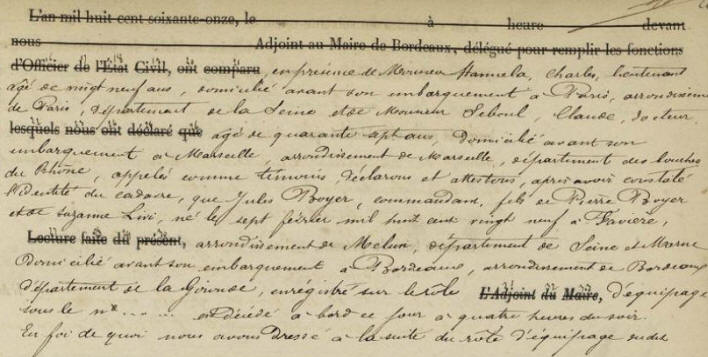 L'an mil huit cent soixante-onze, le à heure devant
nous Adjoint au Maire de Bordeaux, délégué pour remplir les fonctions
d'Officier de l'État Civil, ont comparu, en présence de Monsieur Hamela, Charles, lieutenant
âgé de vingt neuf ans, domicilié avant son embarquement à Paris, arrondissement
de Paris, département de la Seine et de Monsieur Seboul, Claude, docteur,
lesquels nous ont déclaré que âgé de quarante sept ans, domicilié avant son
embarquement à Marseille, arrondissement de Marseille, département des bouches
du Rhône, appelés comme témoins, déclarons et attestons, après avoir constaté
l'identité du cadavre, que Jules Boyer, commandant, fils de Pierre Boyer
et de Suzanne né le sept février mil huit cent vingt neuf à Favière,
Lecture faite du présent, arrondissement de Melun, département de Seine et Marne
domicilié avant son embarquement à Bordeaux, arrondissement de Bordeaux
département de la Gironde, enrégistré sur le rôle L'Adjoint du Maire, d'équipage
sous le n° ... .. est décédé à bord ce jour à quatre heures du soir.
En foi de quoi nous avons dressé à la suite du rôle d'équipage susdit